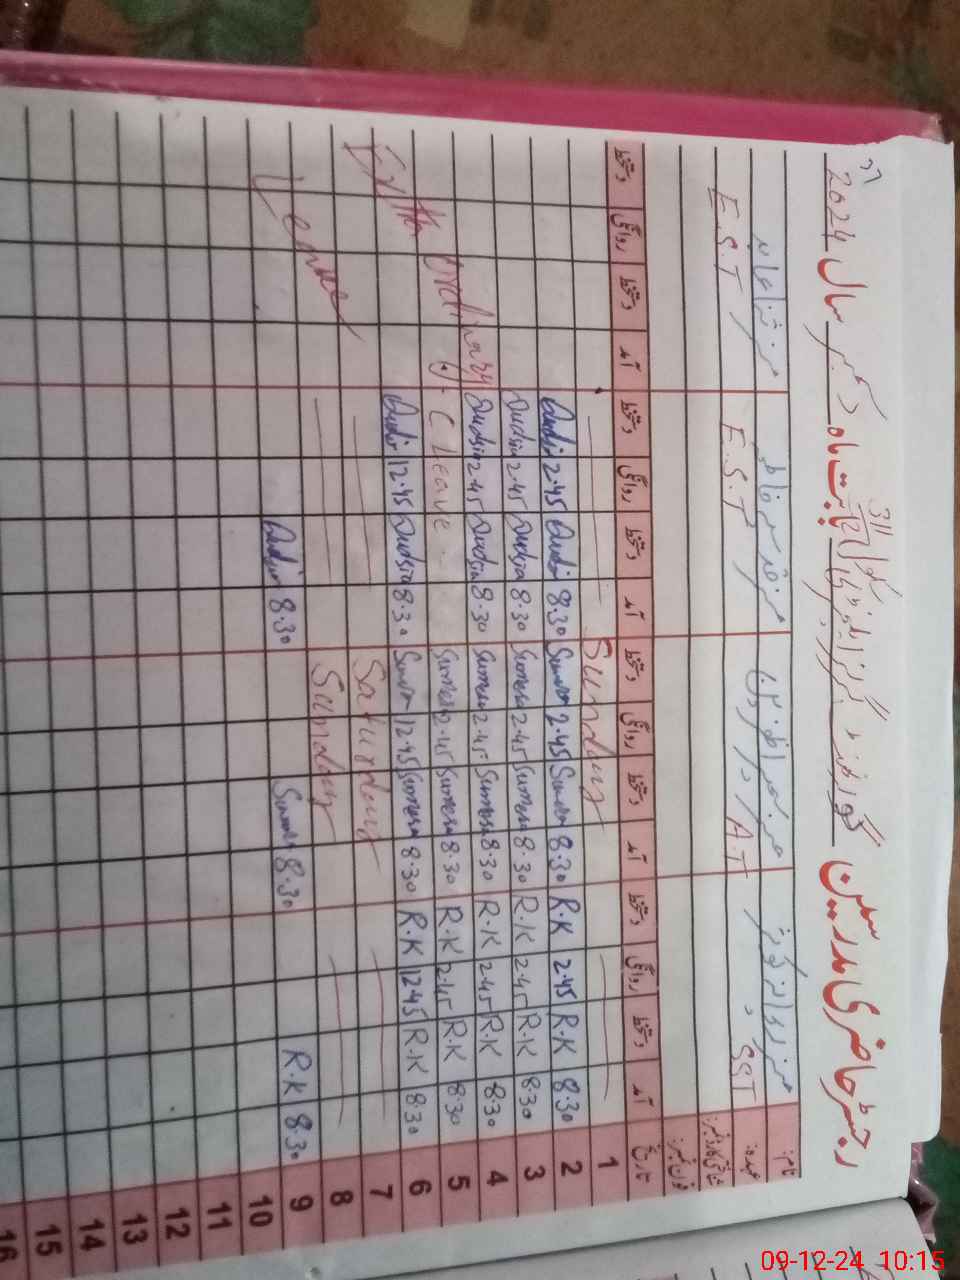 رجسٹر حاضری مدرسین گورنمنٹ گرلز ایلیمنٹری سکول 311 بابت ماہ دسمبر سال 2024
نام:
عہدہ: SST A.T E.S.T E.S.T
شناختی کارڈ نمبر:
فون نمبر:
تاریخ آمد دستخط روانگی دستخط آمد دستخط روانگی دستخط آمد دستخط روانگی دستخط آمد دستخط روانگی دستخط
1 Sunday
2 8:30 R.K 2.45 R.K 8.30 Sumera 2.45 Sumera 8.30 Qudsia 2.45 Qudsia
3 8:30 R.K 2.45 R.K 8.30 Sumera 2.45 Sumera 8.30 Qudsia 2.45 Qudsia
4 8:30 R.K 2.45 R.K 8.30 Sumera 2.45 Sumera 8.30 Qudsia 2.45 Qudsia
5 8:30 R.K 2.45 R.K 8.30 Sumera 2.45 Sumera C Leave
6 8:30 R.K 12.45 R.K 8.30 Sumera 12.45 Sumera 8.30 Qudsia 12.45 Qudsia
7 Saturday
8 Sunday
9 8.30 R.K 8.30 Sumera 8.30 Qudsia
10
11
12
13
14
15
16
Ordinary
09-12-24 10:15